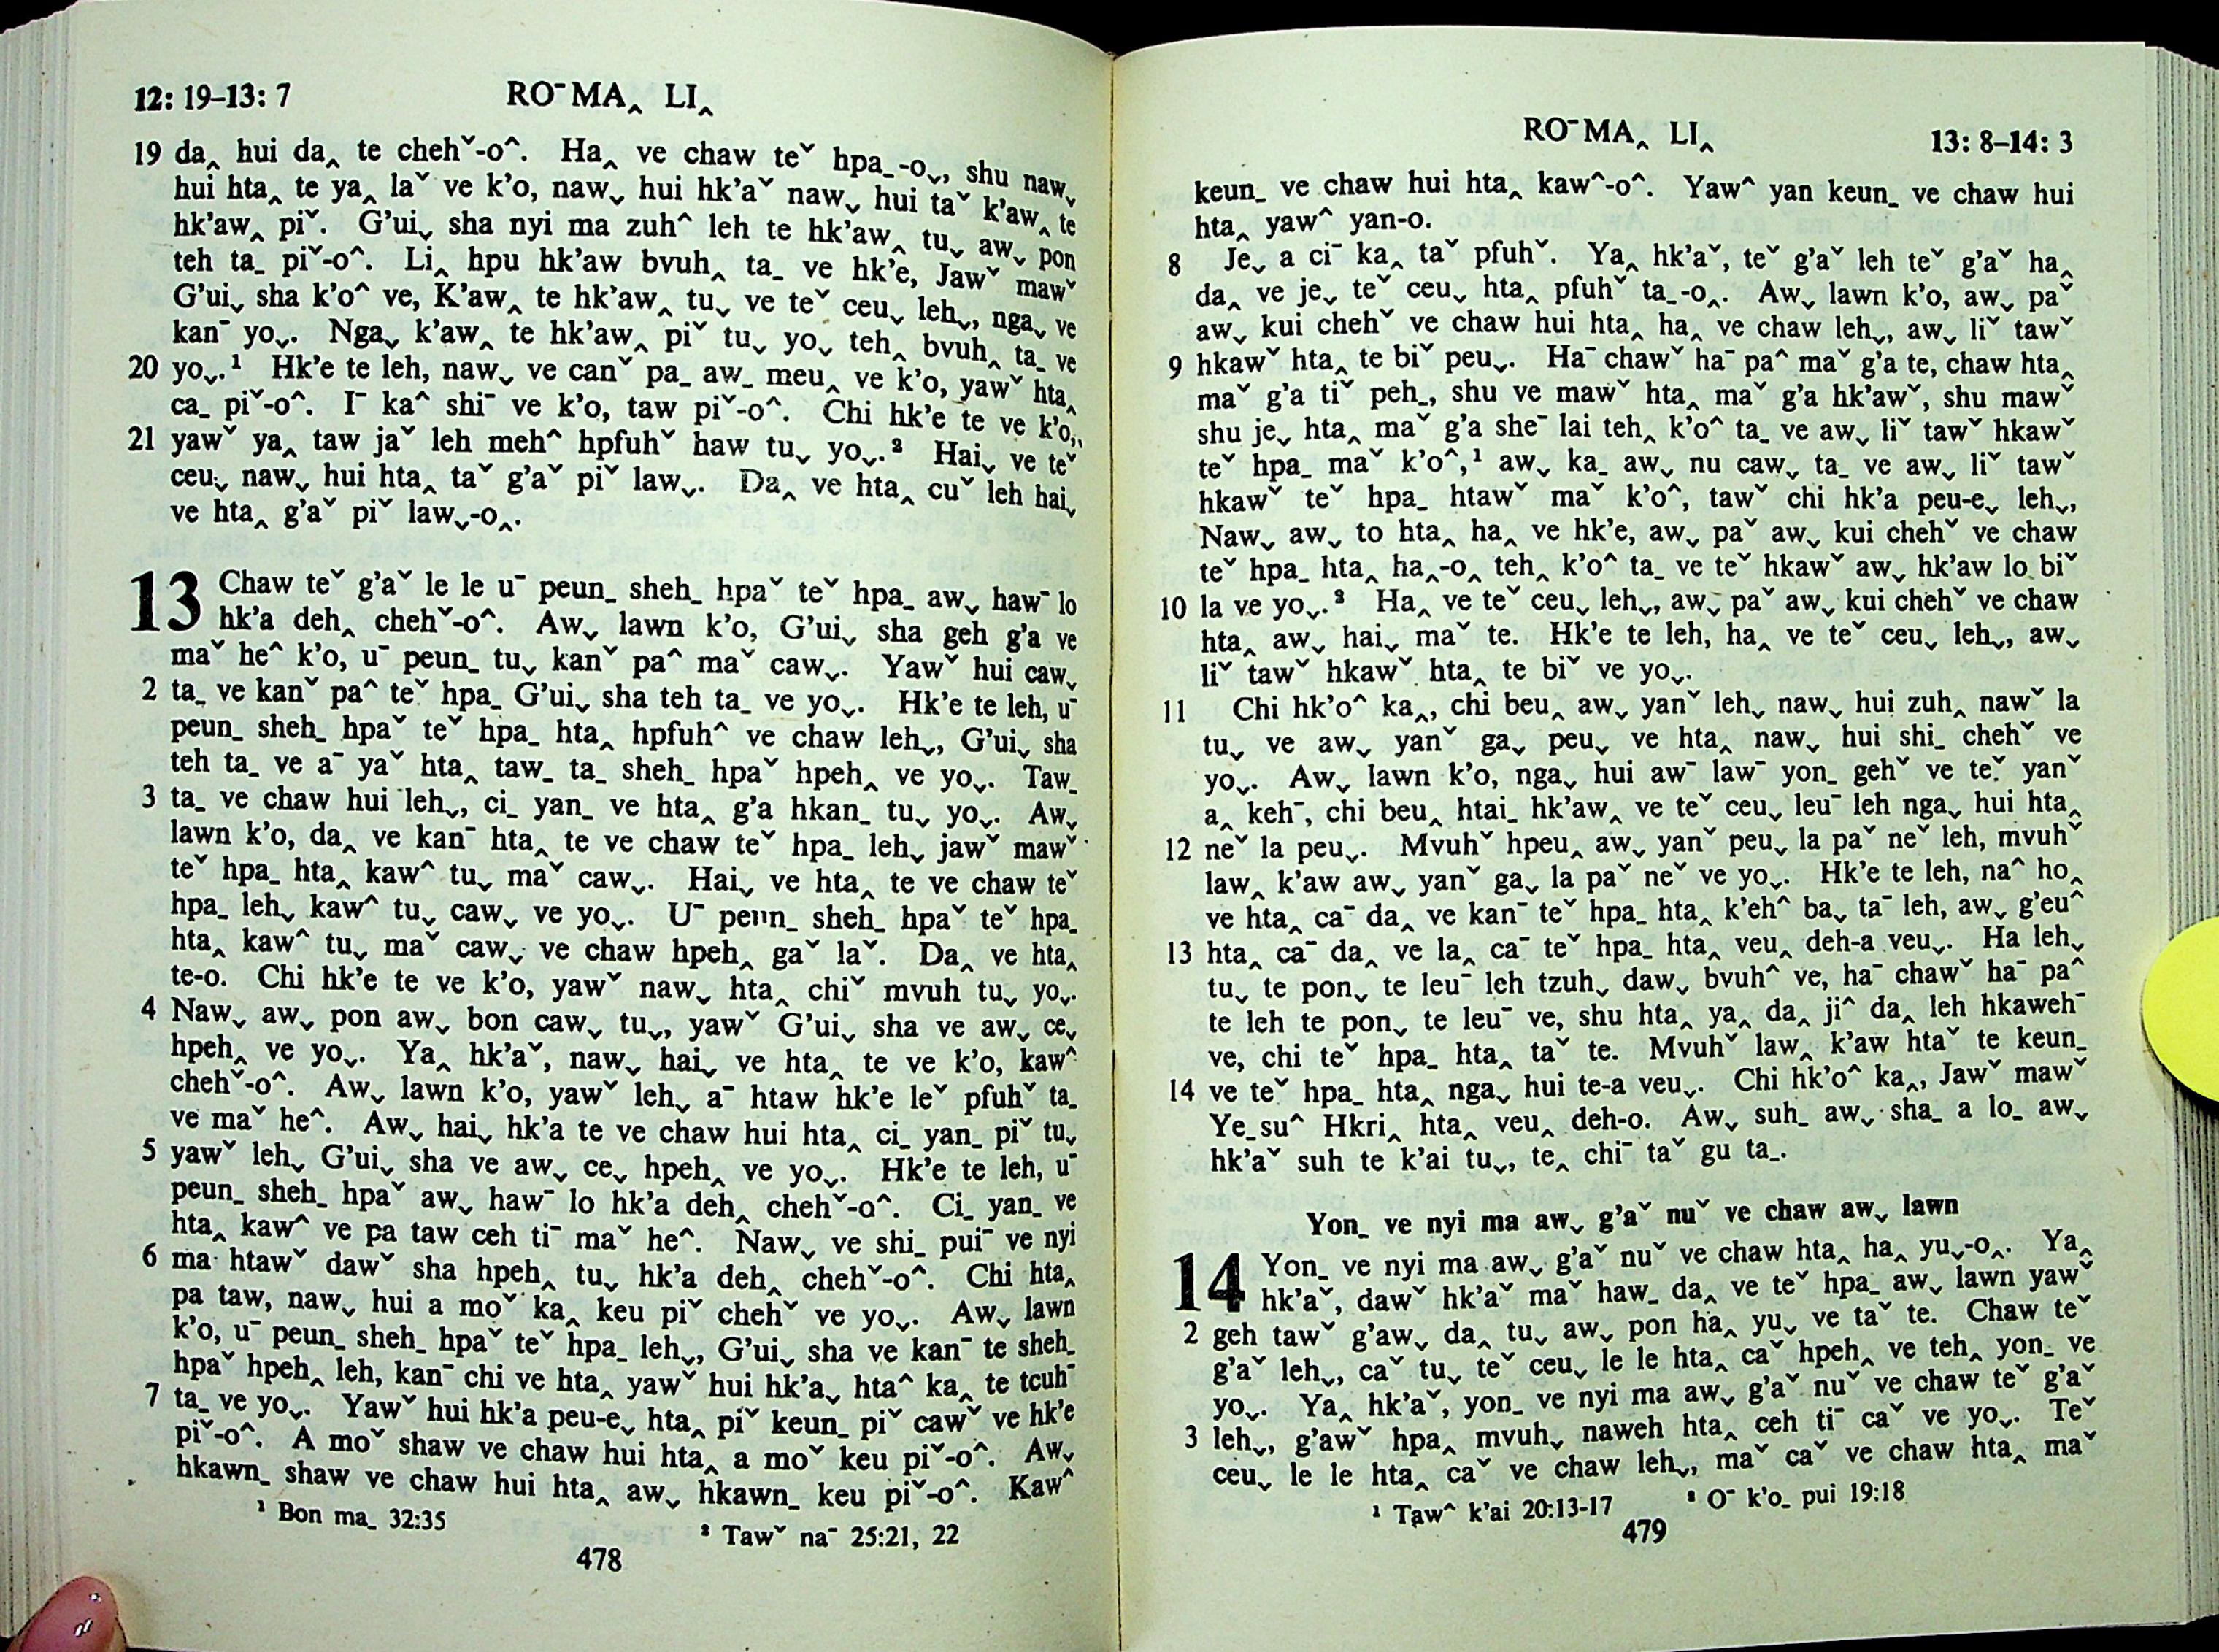 12: 19–13: 7 RO¯MA‸ LI‸
19 da‸ hui da‸ te cheh ˇ-o^. Ha‸ ve chaw teˇ hpa_-oˬ, shu nawˬ
hui hta‸ te ya‸ laˇ ve k’o, nawˬ hui hk’aˇ nawˬ hui taˇ k’aw‸ te
hk’aw‸ piˇ. G’uiˬ sha nyi ma zuh^ leh te hk’aw‸ tuˬ awˬ pon
teh ta_ piˇ-o^. Li‸ hpu hk’aw bvuh‸ ta_ ve hk’e, Jawˇ mawˇ
G’uiˬ sha k’o^ ve, K’aw‸ te hk’aw‸ tuˬ ve teˇ ceuˬ lehˬ, ngaˬ ve
kan¯ yoˬ. Ngaˬ k’aw‸ te hk’aw‸ piˇ tuˬ yoˬ teh‸ bvuh‸ ta_ ve
20 yoˬ.¹ Hk’e te leh, nawˬ ve canˇ pa_ aw_ meu‸ ve k’o, yawˇ hta‸
ca_ piˇ-o^. I¯ ka^ shi¯ ve k’o, taw piˇ-o^. Chi hk’e te ve k’o,
21 yawˇ ya‸ taw jaˇ leh meh^ hpfuhˇ haw tuˬ yoˬ.² Haiˬ ve teˇ
ceuˬ nawˬ hui hta‸ taˇ g’aˇ piˇ lawˬ. Da‸ ve hta‸ cuˇ leh haiˬ
ve hta‸ g’aˇ piˇ lawˬ-o‸.
13 Chaw teˇ g’aˇ le le u¯ peun_ sheh_ hpaˇ teˇ hpa_ awˬ haw¯ lo
hk’a deh‸ chehˇ-o^. Awˬ lawn k’o, G’uiˬ sha geh g’a ve
maˇ he^ k’o, u¯ peun_ tuˬ kanˇ pa^ maˇ cawˬ. Yawˇ hui cawˬ
2 ta_ ve kanˇ pa^ teˇ hpa_ G’uiˬ sha teh ta_ ve yoˬ. Hk’e te leh, u¯
peun_ sheh_ hpaˇ teˇ hpa_ hta‸ hpfuh^ ve chaw lehˬ, G’uiˬ sha
teh ta_ ve a¯ yaˇ hta‸ taw_ ta_ sheh_ hpaˇ hpeh‸ ve yoˬ. Taw_
3 ta_ ve chaw hui lehˬ, ci_ yan_ ve hta‸ g’a hkan_ tuˬ yoˬ. Awˬ
lawn k’o, da‸ ve kan¯ hta‸ te ve chaw teˇ hpa_ lehˬ jawˇ mawˇ
teˇ hpa_ hta‸ kaw^ tuˬ maˇ cawˬ. Haiˬ ve hta‸ te ve chaw teˇ
hpa_ lehˬ kaw^ tuˬ cawˬ ve yoˬ. U¯ peun_ sheh_ hpaˇ teˇ hpa_
hta‸ kaw^ tuˬ maˇ cawˬ ve chaw hpeh‸ gaˇ laˇ. Da‸ ve hta‸
te-o. Chi hk’e te ve k’o, yawˇ nawˬ hta‸ chiˇ mvuh tuˬ yoˬ.
4 Nawˬ awˬ pon awˬ bon cawˬ tuˬ, yawˇ G’uiˬ sha ve awˬ ceˬ
hpeh‸ ve yoˬ. Ya‸ hk’aˇ, nawˬ haiˬ ve hta‸ te ve k’o, kaw^
chehˇ-o^. Awˬ lawn k’o, yawˇ lehˬ a¯ htaw hk’e leˇ pfuhˇ ta_
ve maˇ he^. Awˬ haiˬ hk’a te ve chaw hui hta‸ ci_ yan_ piˇ tuˬ
5 yawˇ lehˬ G’uiˬ sha ve awˬ ceˬ hpeh‸ ve yoˬ. Hk’e te leh, u¯
peun_ sheh_ hpaˇ awˬ haw¯ lo hk’a deh‸ chehˇ-o^. Ci_ yan_ ve
hta‸ kaw^ ve pa taw ceh ti¯ maˇ he^. Nawˬ ve shi_ pui¯ ve nyi
6 ma htawˇ dawˇ sha hpeh‸ tuˬ hk’a deh‸ chehˇ-o^. Chi hta‸
pa taw, nawˬ hui a moˇ ka‸ keu piˇ chehˇ ve yoˬ. Awˬ lawn
k’o, u¯ peun_ sheh_ hpaˇ teˇ hpa_ lehˬ, G’uiˬ sha ve kan¯ te sheh_
hpaˇ hpeh‸ leh, kan¯ chi ve hta‸ yawˇ hui hk’aˬ hta^ ka‸ te tcuh¯
7 ta_ ve yoˬ. Yawˇ hui hk’a peu-eˬ hta‸ piˇ keun_ piˇ cawˇ ve hk’e
piˇ-o^. A moˇ shaw ve chaw hui hta‸ a moˇ keu piˇ-o^. Awˬ
hkawn_ shaw ve chaw hui hta‸ awˬ hkawn_ keu piˇ-o^. Kaw^
¹ Bon ma_ 32:35 ² Tawˇ na¯ 25:21, 22
478
RO¯MA‸ LI‸ 13: 8–14: 3
keun_ ve chaw hui hta‸ kaw^-o^. Yaw^ yan keun_ ve chaw hui
hta‸ yaw^ yan-o.
8 Jeˬ a ci¯ ka‸ taˇ pfuhˇ. Ya‸ hk’aˇ, teˇ g’aˇ leh teˇ g’aˇ ha‸
da‸ ve jeˬ teˇ ceuˬ hta‸ pfuhˇ ta_-o‸. Awˬ lawn k’o, awˬ paˇ
awˬ kui chehˇ ve chaw hui hta‸ ha‸ ve chaw lehˬ, awˬ liˇ tawˇ
9 hkawˇ hta‸ te biˇ peuˬ. Ha¯ chawˇ ha¯ pa^ maˇ g’a te, chaw hta‸
maˇ g’a tiˇ peh_, shu ve mawˇ hta‸ maˇ g’a hk’awˇ, shu mawˇ
shu jeˬ hta‸ maˇ g’a she¯ lai teh‸ k’o^ ta_ ve awˬ liˇ tawˇ hkawˇ
teˇ hpa_ maˇ k’o^,¹ awˬ ka_ awˬ nu cawˬ ta_ ve awˬ liˇ tawˇ
hkawˇ teˇ hpa_ htawˇ maˇ k’o^, tawˇ chi hk’a peu-eˬ lehˬ,
Nawˬ awˬ to hta‸ ha‸ ve hk’e, awˬ paˇ awˬ kui chehˇ ve chaw
teˇ hpa_ hta‸ ha‸-o‸ teh‸ k’o^ ta_ ve teˇ hkawˇ awˬ hk’aw lo biˇ
10 la ve yoˬ.² Ha‸ ve teˇ ceuˬ lehˬ, awˬ paˇ awˬ kui chehˇ ve chaw
hta‸ awˬ haiˬ maˇ te. Hk’e te leh, ha‸ ve teˇ ceuˬ lehˬ, awˬ
liˇ tawˇ hkawˇ hta‸ te biˇ ve yoˬ.
11 Chi hk’o^ ka‸, chi beu‸ awˬ yanˇ lehˬ nawˬ hui zuh‸ nawˇ la
tuˬ ve awˬ yanˇ gaˬ peuˬ ve hta‸ nawˬ hui shi_ chehˇ ve
yoˬ. Awˬ lawn k’o, ngaˬ hui aw¯ law¯ yon_ gehˇ ve teˇ yanˇ
a‸ keh¯, chi beu‸ htai_ hk’aw‸ ve teˇ ceuˬ leu¯ leh ngaˬ hui hta‸
12 neˇ la peuˬ. Mvuhˇ hpeu‸ awˬ yanˇ peuˬ la paˇ neˇ leh, mvuhˇ
law‸ k’aw awˬ yanˇ gaˬ la paˇ neˇ ve yoˬ. Hk’e te leh, na^ ho‸
ve hta‸ ca¯ da‸ ve kan¯ teˇ hpa_ hta‸ k’eh^ baˬ ta¯ leh, awˬ g’eu^
13 hta‸ ca¯ da‸ ve la‸ ca¯ teˇ hpa_ hta‸ veu‸ deh-a veuˬ. Ha lehˬ
tuˬ te ponˬ te leu¯ leh tzuhˬ dawˬ bvuh^ ve, ha¯ chawˇ ha¯ pa^
te leh te ponˬ te leu¯ ve, shu hta‸ ya‸ da‸ ji^ da‸ leh hkaweh¯
ve, chi teˇ hpa_ hta‸ taˇ te. Mvuhˇ law‸ k’aw htaˇ te keun_
14 ve teˇ hpa_ hta‸ ngaˬ hui te-a veuˬ. Chi hk’o^ ka‸, Jawˇ mawˇ
Ye_su^ Hkri‸ hta‸ veu‸ deh-o. Awˬ suh_ awˬ sha_ a lo_ awˬ
hk’aˇ suh te k’ai tuˬ, te‸ chi¯ taˇ gu ta_.
Yon_ ve nyi ma awˬ g’aˇ nuˇ ve chaw awˬ lawn
14 Yon_ ve nyi ma awˬ g’aˇ nuˇ ve chaw hta‸ ha‸ yuˬ-o‸. Ya‸
hk’aˇ, dawˇ hk’aˇ maˇ haw_ da‸ ve teˇ hpa_ awˬ lawn yawˇ
2 geh tawˇ g’awˬ da‸ tuˬ awˬ pon ha‸ yuˬ ve taˇ te. Chaw teˇ
g’aˇ lehˬ, caˇ tuˬ teˇ ceuˬ le le hta‸ caˇ hpeh‸ ve teh‸ yon_ ve
yoˬ. Ya‸ hk’aˇ, yon_ ve nyi ma awˬ g’aˇ nuˇ ve chaw teˇ g’aˇ
3 lehˬ, g’awˇ hpa‸ mvuhˬ naweh hta‸ ceh ti¯ caˇ ve yoˬ. Teˇ
ceuˬ le le hta‸ caˇ ve chaw lehˬ, maˇ caˇ ve chaw hta‸ maˇ
¹ Taw^ k’ai 20:13-17 ² O¯ k’o_ pui 19:18
479